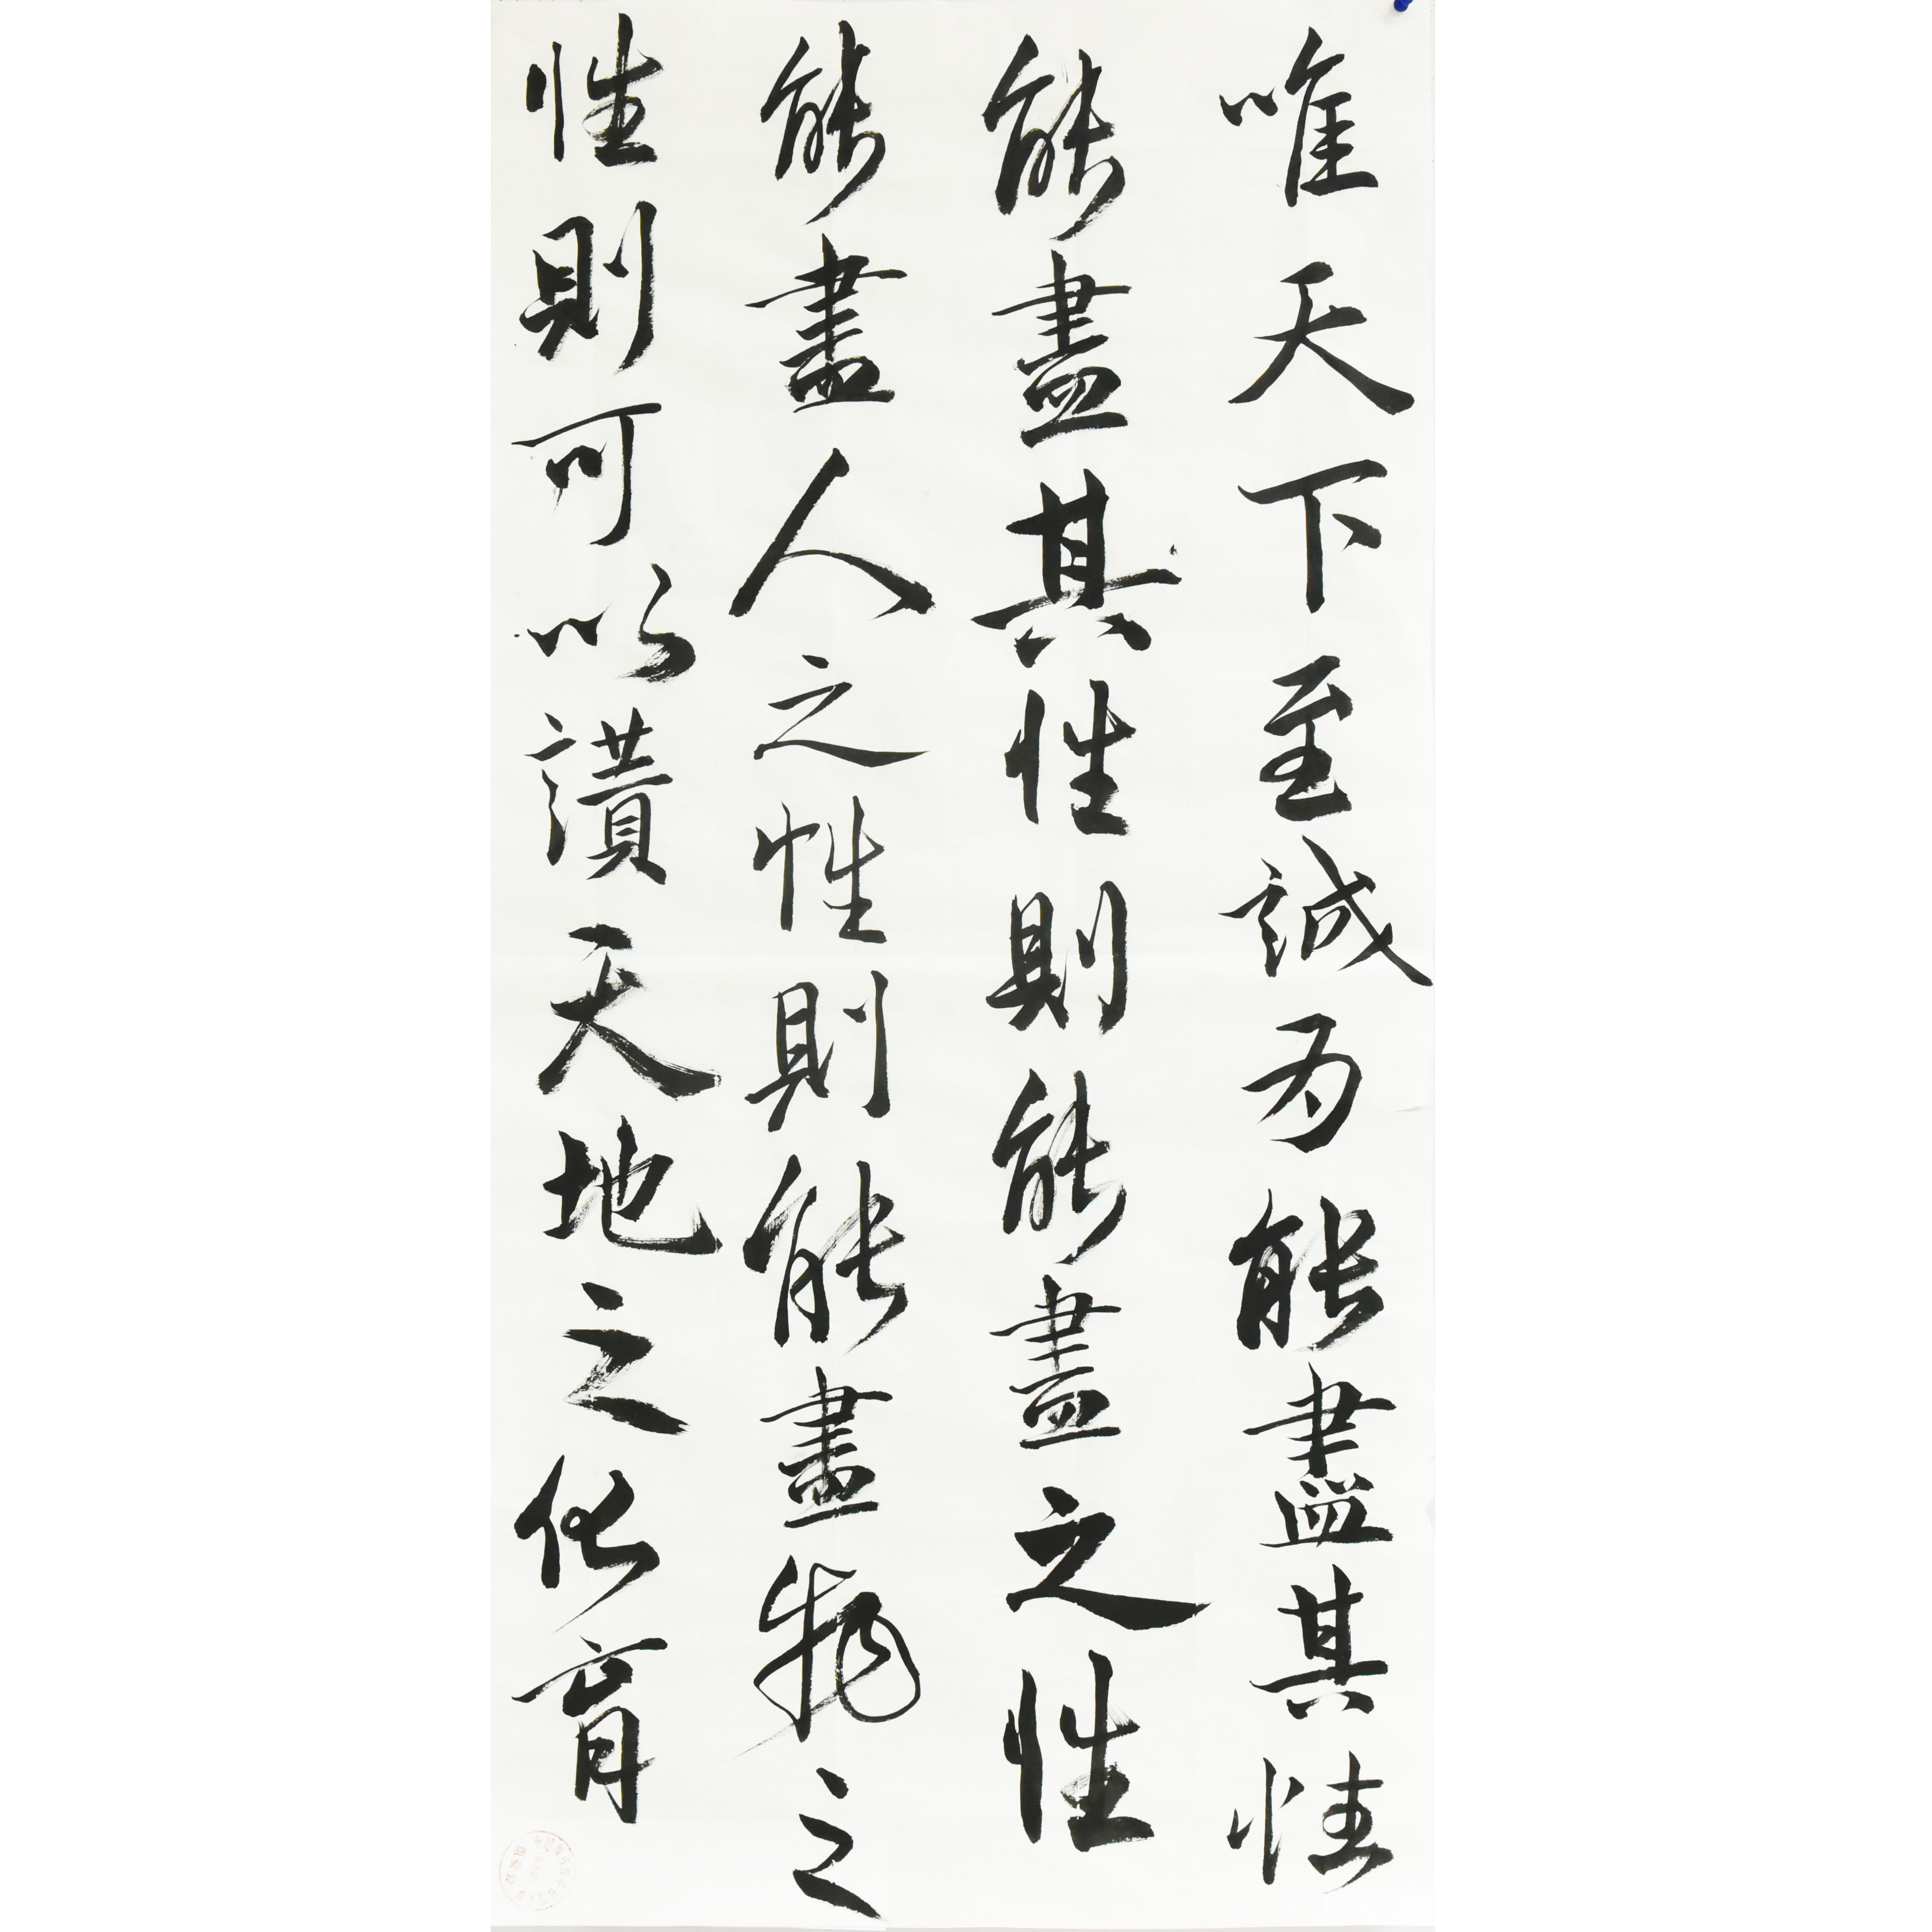 唯天下至誠为能盡其性
能盡其性則能盡之性
能盡人之性則能盡物之
性則可以讃天地之化育